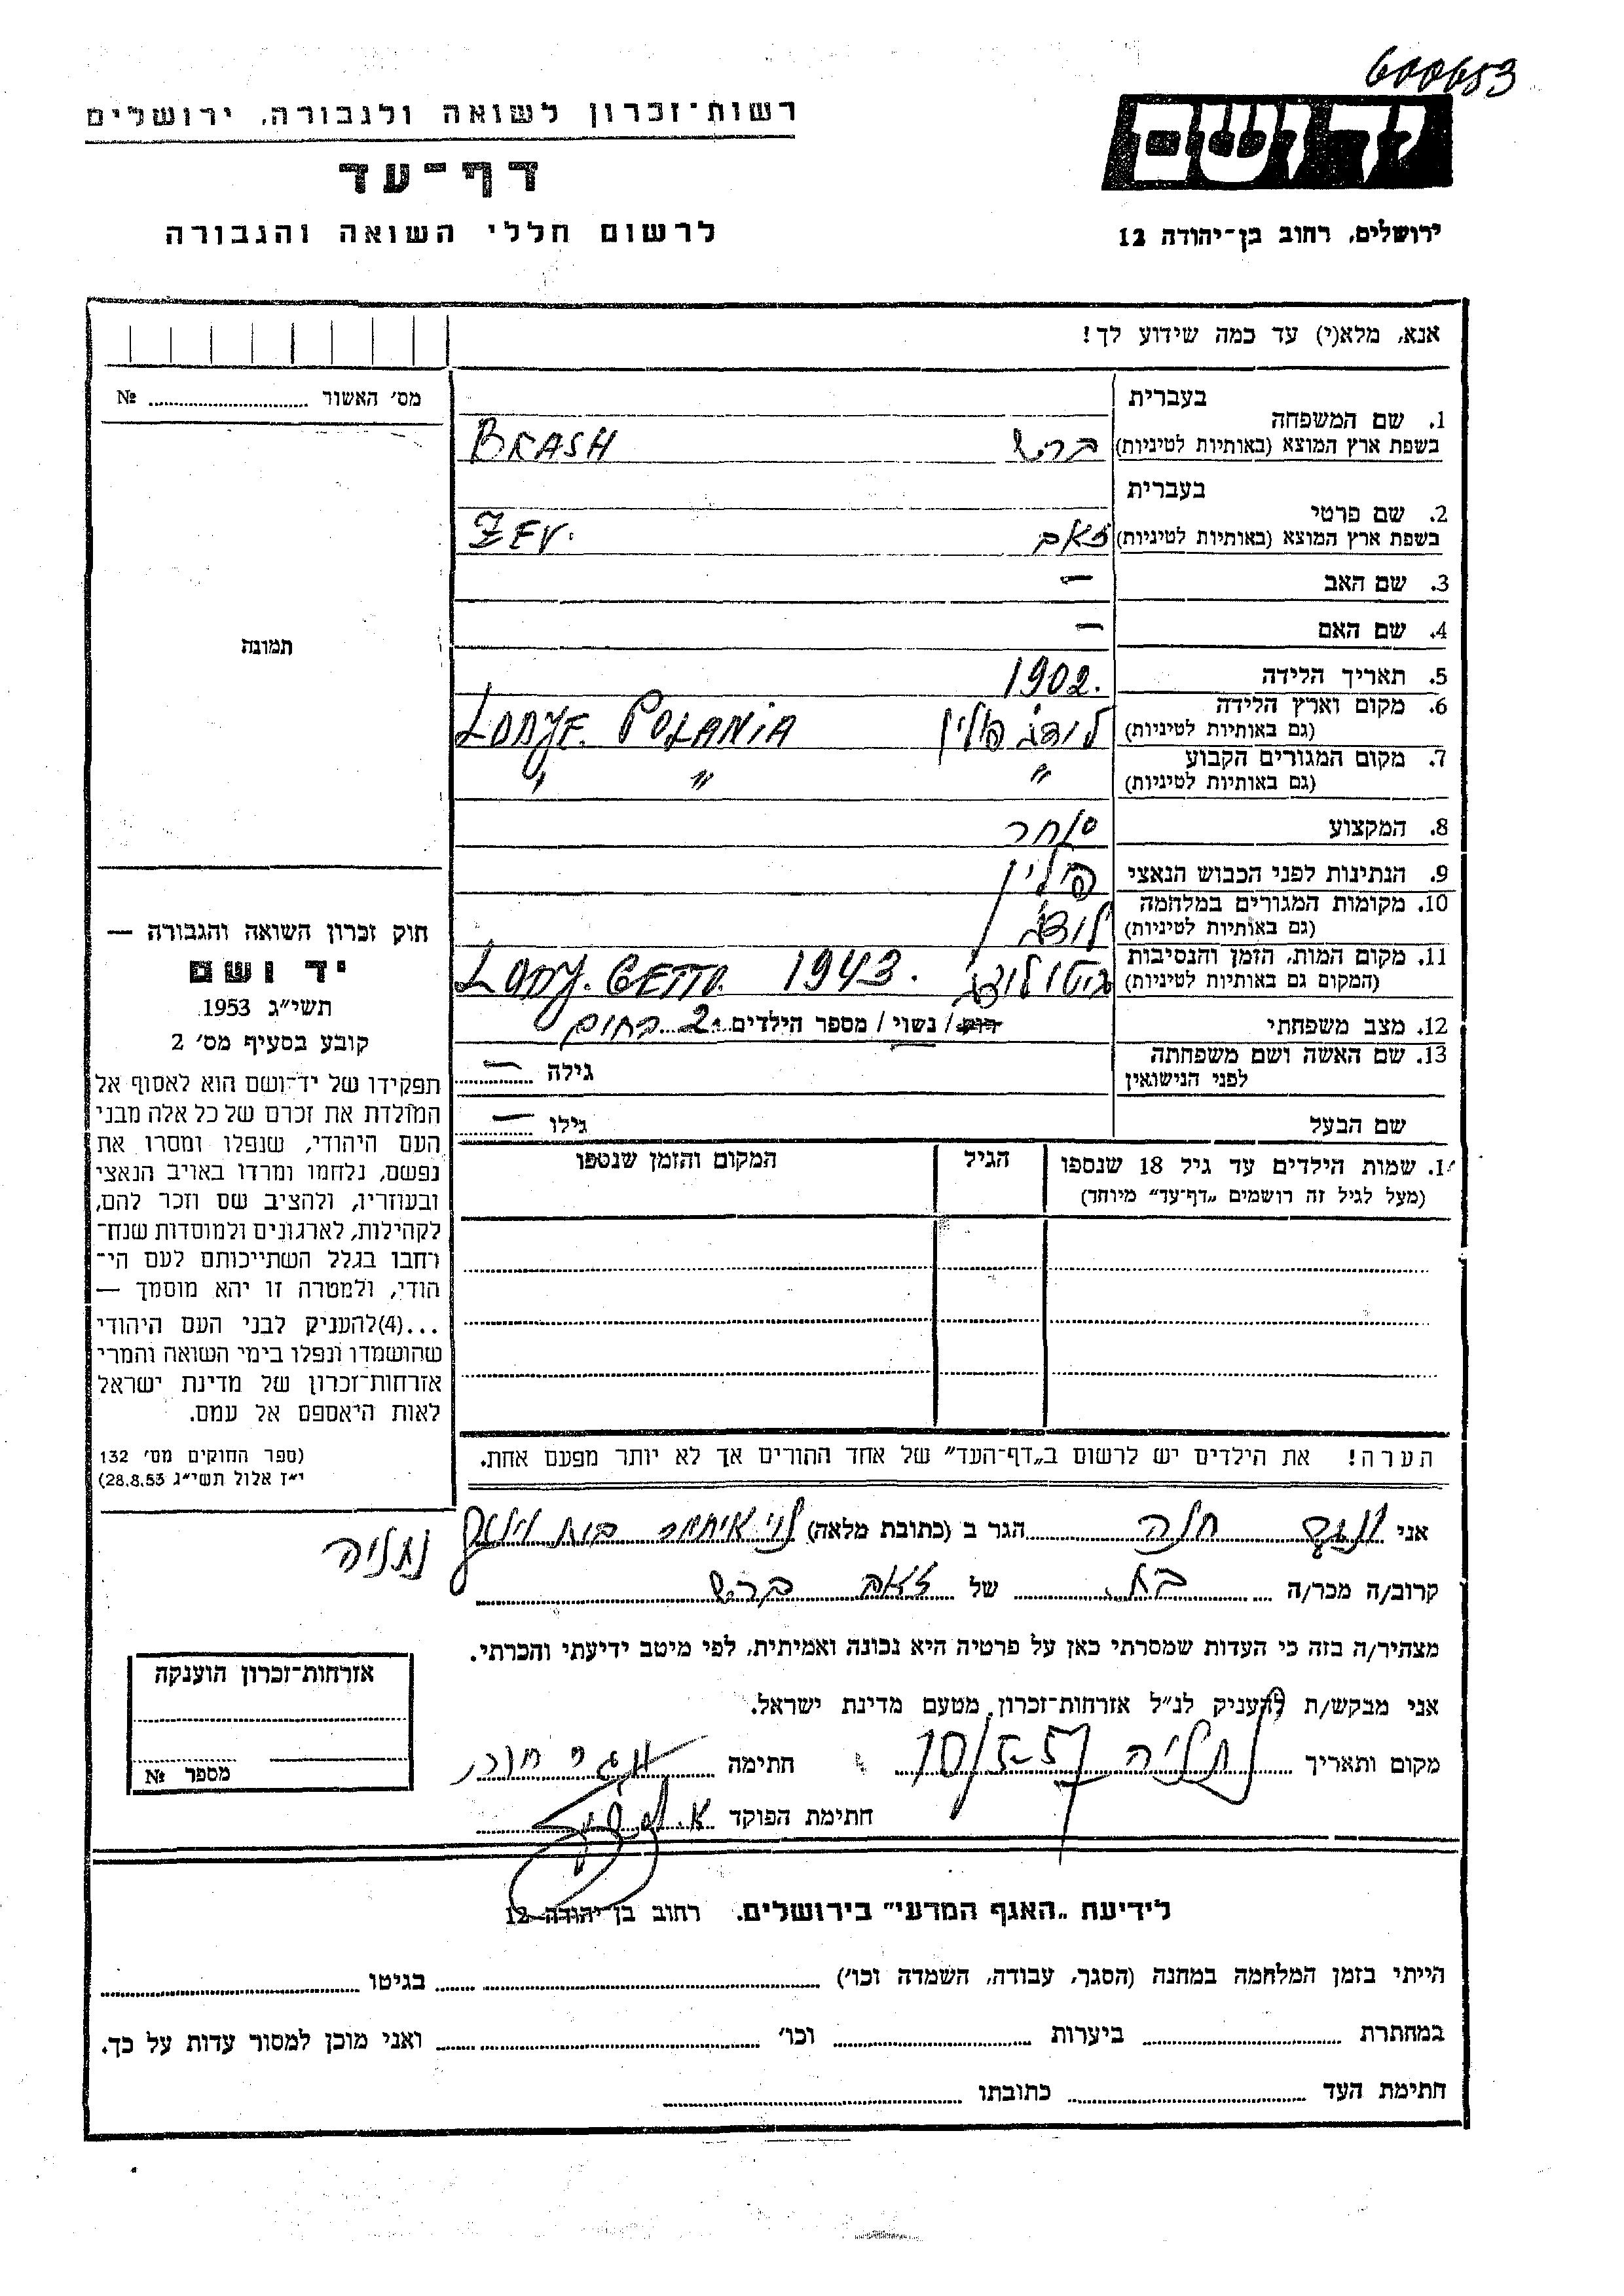 600653
רשות-זכרון לשואה ולגבורה, ירושלים
דף-עד
לרשום חללי השואה והגבורה
יד ושם
ירושלים, רחוב בן-יהודה 12
אנא, מלא(י) עד כמה שידוע לך!
מס׳ האשור № 
תמונה
חוק זכרון השואה והגבורה —
יד ושם
תשי״ג 1953
קובע בסעיף מס׳ 2
תפקידו של יד-ושם הוא לאסוף אל
המולדת את זכרם של כל אלה מבני
העם היהודי, שנפלו ומסרו את
נפשם, נלחמו ומרדו באויב הנאצי
ובעוזריו, ולהציב שם וזכר להם,
לקהילות, לארגונים ולמוסדות שנח-
רחבו בגלל השתייכותם לעם הי-
הודי, ולמטרה זו יהא מוסמך —
...(4)להעניק לבני העם היהודי
שהושמדו ונפלו בימי השואה והמרי
אזרחות-זכרון של מדינת ישראל
לאות היאספם אל עמם.
(ספר החוקים מס׳ 132
י״ז אלול תשי״ג 28.8.53)
בעברית
1. שם המשפחה
בשפת ארץ המוצא (באותיות לטיניות) ברש BRASH
בעברית
2. שם פרטי
בשפת ארץ המוצא (באותיות לטיניות) זאב ZEV.
3. שם האב —
4. שם האם —
5. תאריך הלידה 1902.
6. מקום וארץ הלידה
(גם באותיות לטיניות) לודג פולין LODJE. POLANIA
7. מקום המגורים הקבוע
(גם באותיות לטיניות) " " "
8. המקצוע סוחר
9. הנתינות לפני הכבוש הנאצי פולין
10. מקומות המגורים במלחמה
(גם באותיות לטיניות) לודג
11. מקום המות, הזמן והנסיבות
(המקום גם באותיות לטיניות) גיטו לודג 1943. LODJ. GETTO.
12. מצב משפחתי רווק / נשוי / מספר הילדים 2
13. שם האשה ושם משפחתה
לפני הנישואין גילה —
שם הבעל גילו —
1. שמות הילדים עד גיל 18 שנספו הגיל המקום והזמן שנספו
(מעל לגיל זה רושמים „דף-עד״ מיוחד)
הערה! את הילדים יש לרשום ב„דף-העד״ של אחד ההורים אך לא יותר מפעם אחת.
אני חנה הגר ב (כתובת מלאה)
נתניה
קרוב/ה מכר/ה בת של זאב ברש
מצהיר/ה בזה כי העדות שמסרתי כאן על פרטיה היא נכונה ואמיתית, לפי מיטב ידיעתי והכרתי.
אני מבקש/ת להעניק לנ״ל אזרחות-זכרון מטעם מדינת ישראל.
מקום ותאריך נתניה 10/5-57 חתימה
חתימת הפוקד
אזרחות-זכרון הוענקה
מספר №
לידיעת „האגף המדעי״ בירושלים, רחוב בן יהודה 12
הייתי בזמן המלחמה במחנה (הסגר, עבודה, השמדה וכו׳) בגיטו
במחתרת ביערות וכו׳ ואני מוכן למסור עדות על כך.
חתימת העד כתובתו